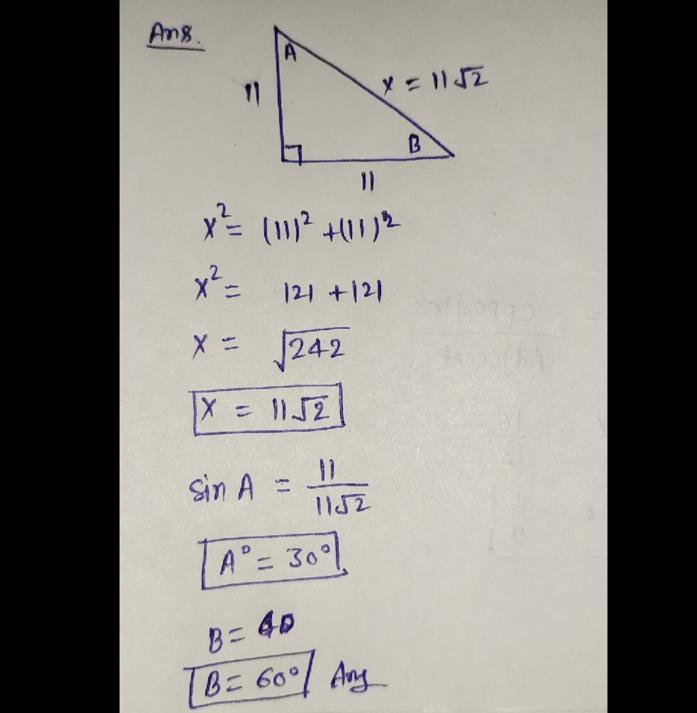 Ans.
A
11
x = 11√2
B
11
x² = (11)² + (11)²
x² = 121 + 121
x = √242
x = 11√2
sin A = 11/11√2
A° = 30°
B =
B = 60° Ans